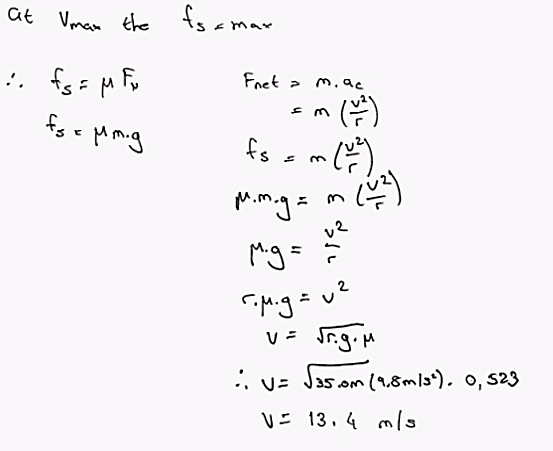 at Vmax the fs = max
∴ fs = μ FN
fs = μ m.g
Fnet = m.ac
= m (v²/r)
fs = m (v²/r)
μ.m.g = m (v²/r)
μ.g = v²/r
r.μ.g = v²
v = √r.g.μ
∴ v = √35.0m (9.8m/s²). 0,523
v = 13.4 m/s